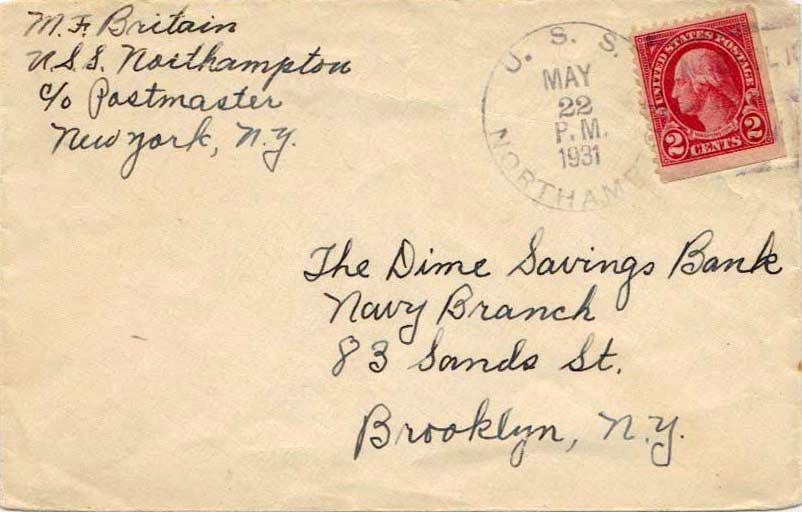 M. F. Britain
U.S.S. Northampton
c/o Postmaster
New York, N.Y.
U. S. S.
MAY
22
P. M.
1931
NORTHAM
UNITED STATES POSTAGE
2 CENTS 2
The Dime Savings Bank
Navy Branch
83 Sands St.
Brooklyn, N.Y.